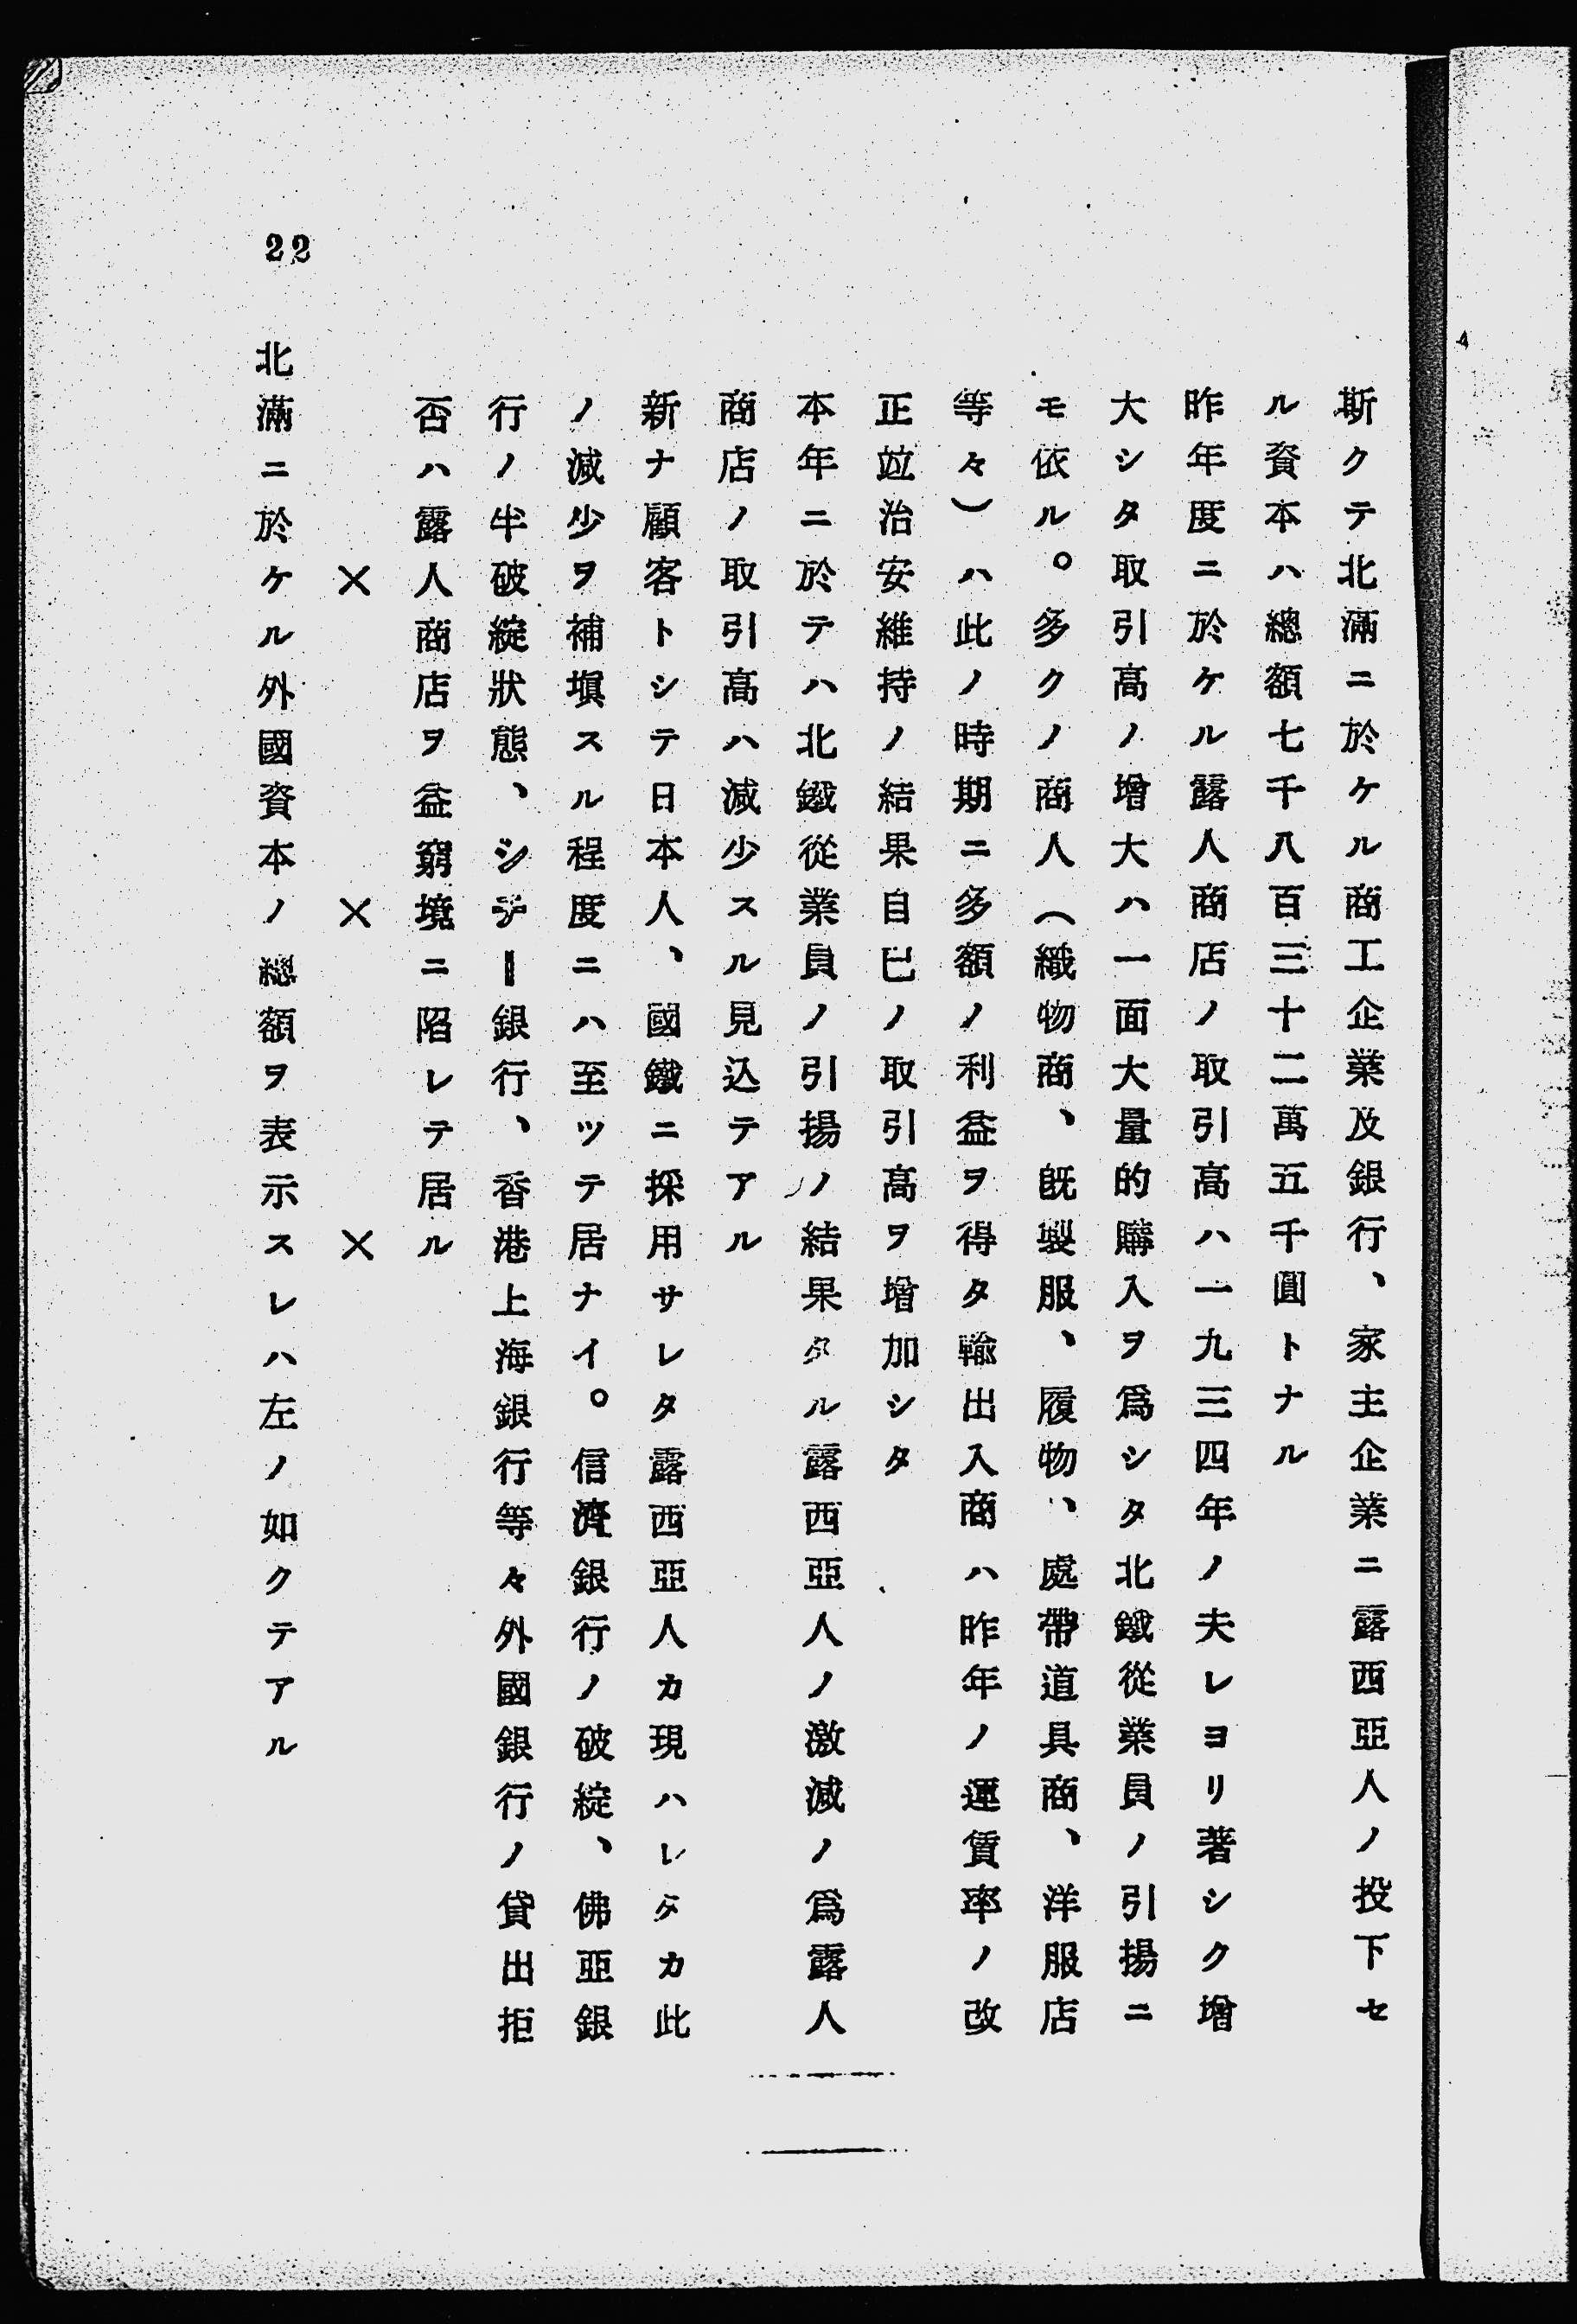 斯クテ北滿ニ於ケル商工企業及銀行、家主企業ニ露西亞人ノ投下セ
ル資本ハ總額七千八百三十二萬五千圓トナル
昨年度ニ於ケル露人商店ノ取引高ハ一九三四年ノ夫レヨリ著シク增
大シタ取引高ノ增大ハ一面大量的購入ヲ爲シタ北鐵從業員ノ引揚ニ
モ依ル。多クノ商人（織物商、既製服、履物、處帶道具商、洋服店
等々）ハ此ノ時期ニ多額ノ利益ヲ得タ輸出入商ハ昨年ノ運賃率ノ改
正竝治安維持ノ結果自已ノ取引高ヲ增加シタ
本年ニ於テハ北鐵從業員ノ引揚ノ結果タル露西亞人ノ激減ノ爲露人
商店ノ取引高ハ減少スル見込テアル
新ナ顧客トシテ日本人、國鐵ニ採用サレタ露西亞人カ現ハレタカ此
ノ減少ヲ補塡スル程度ニハ至ツテ居ナイ。信濟銀行ノ破綻、佛亞銀
行ノ半破綻狀態、シテー銀行、香港上海銀行等々外國銀行ノ貸出拒
否ハ露人商店ヲ益窮境ニ陷レテ居ル
× × ×
22
北滿ニ於ケル外國資本ノ總額ヲ表示スレハ左ノ如クテアル